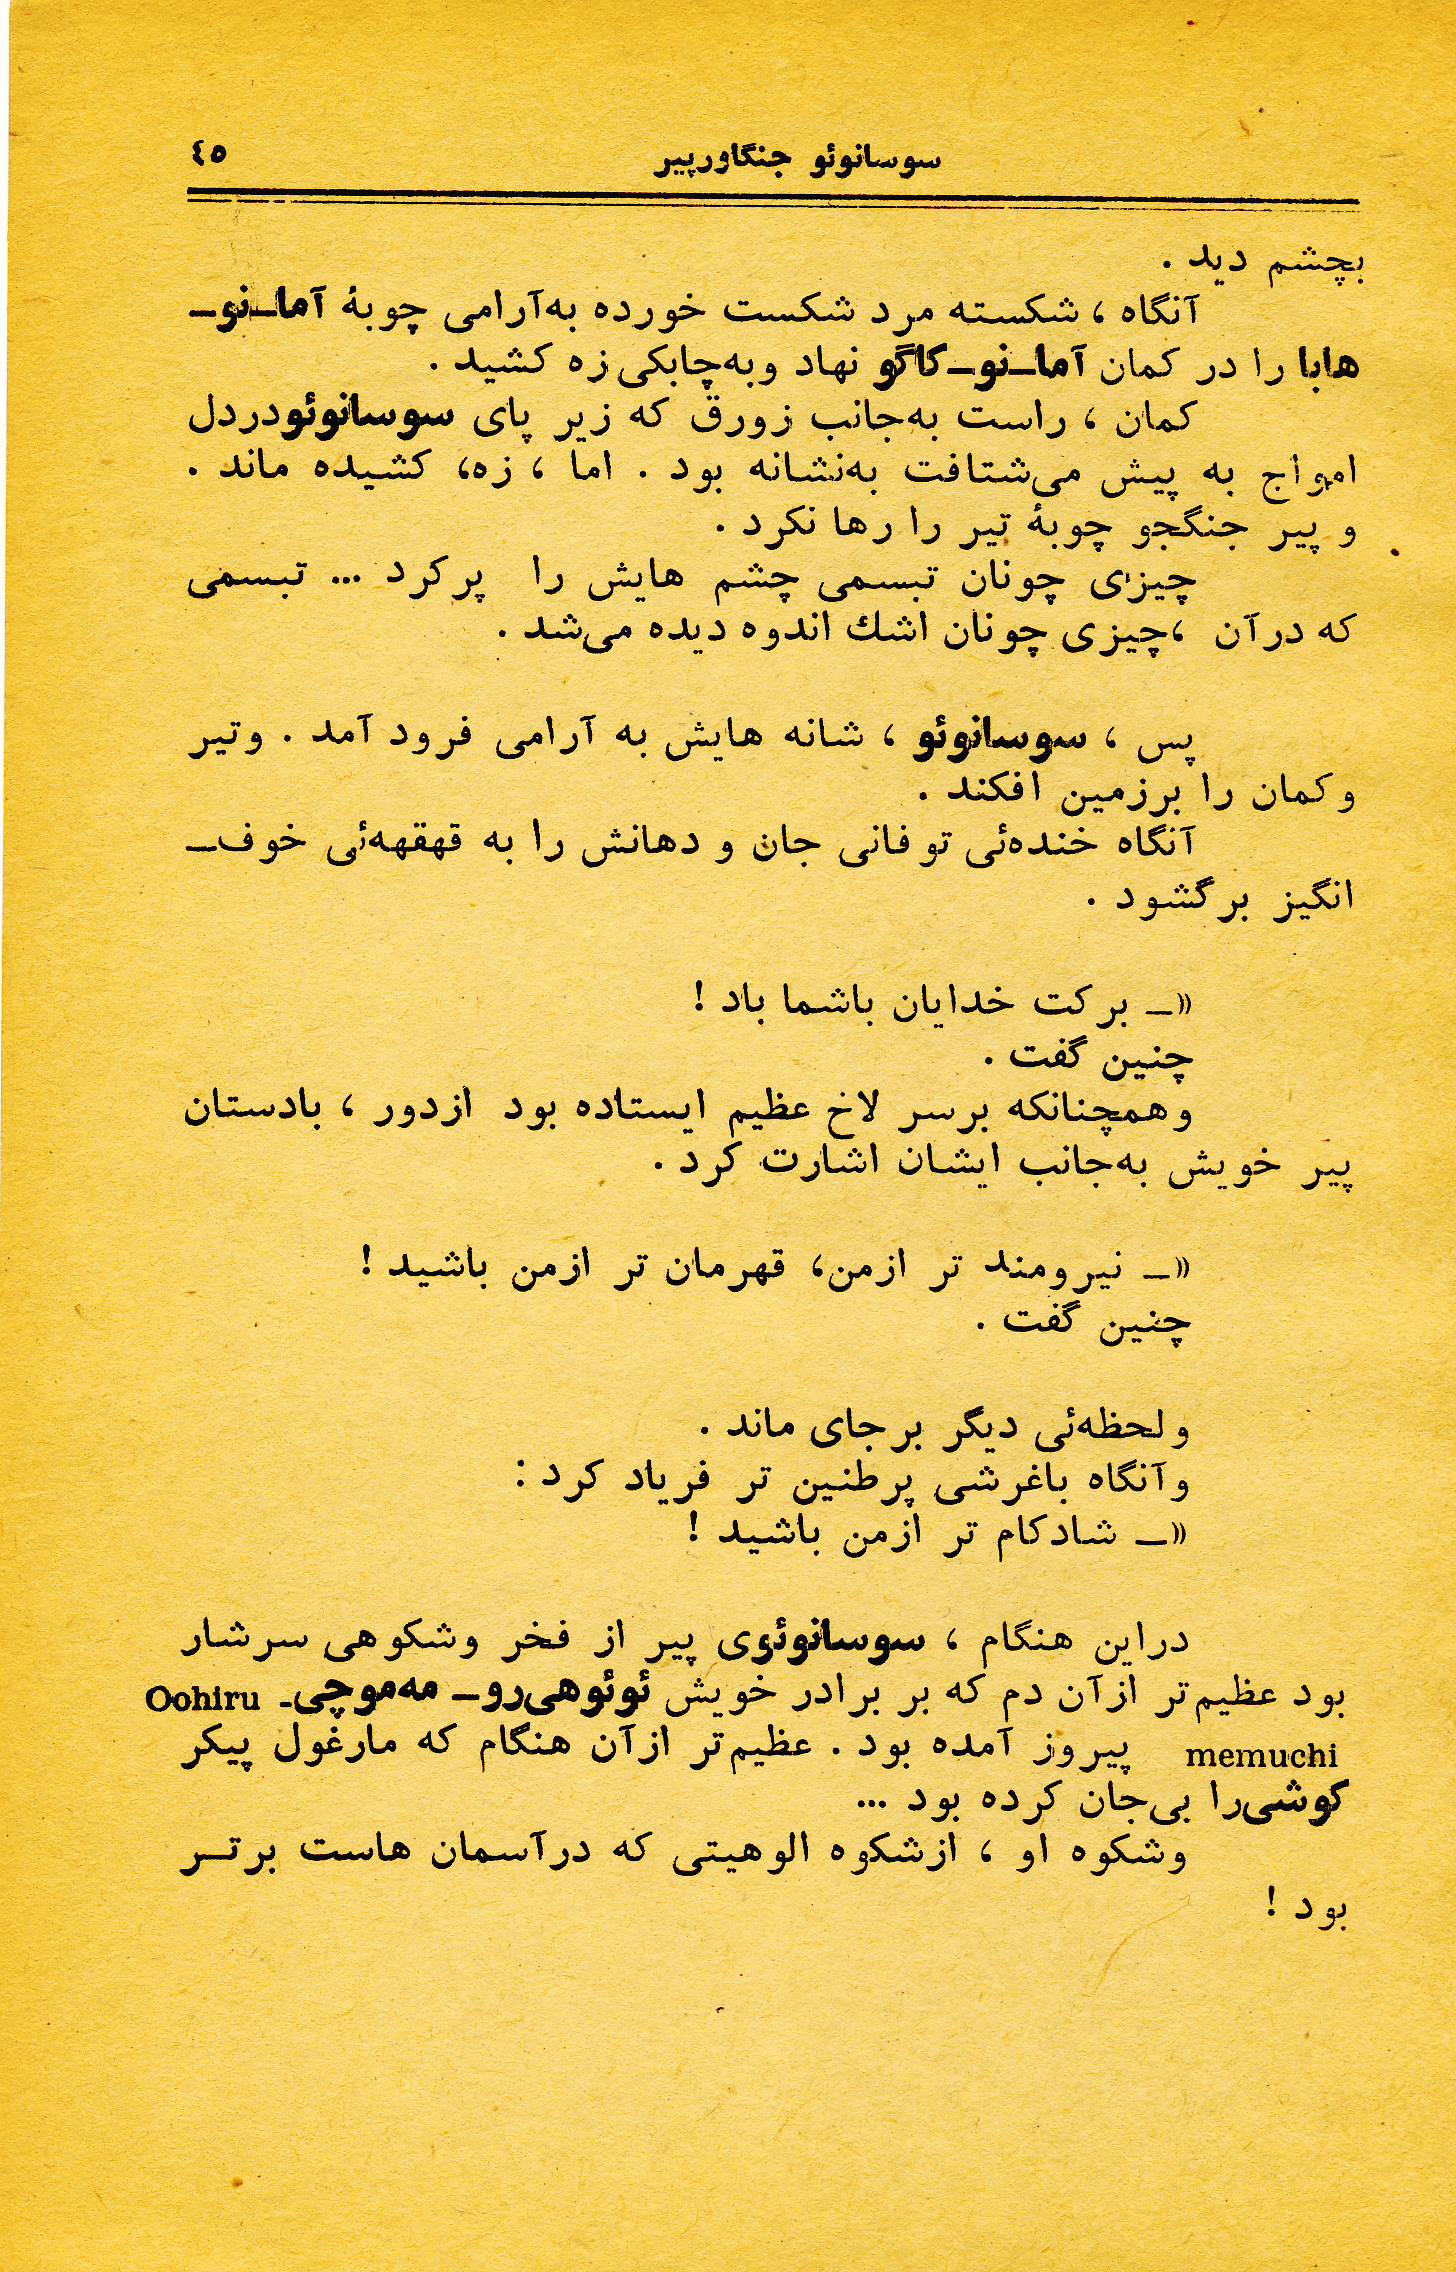 سوسانوئو جنگاورپیر ٤٥
بچشم دید .
آنگاه ، شکسته مرد شکست خورده به‌آرامی چوبهٔ آما_نو_
هابا را در کمان آما_نو_کاگو نهاد وبه‌چابکی زه کشید .
کمان ، راست به‌جانب زورق که زیر پای سوسانوئودردل
امواج به پیش می‌شتافت به‌نشانه بود . اما ، زه، کشیده ماند .
و پیر جنگجو چوبهٔ تیر را رها نکرد .
چیزی چونان تبسمی چشم هایش را پرکرد ... تبسمی
که درآن ،چیزی چونان اشك اندوه دیده می‌شد .
پس ، سوسانوئو ، شانه هایش به آرامی فرود آمد . وتیر
وکمان را برزمین افکند .
آنگاه خنده‌ئی توفانی جان و دهانش را به قهقهه‌ئی خوف_
انگیز برگشود .
«_ برکت خدایان باشما باد !
چنین گفت .
وهمچنانکه برسر لاخ عظیم ایستاده بود ازدور ، بادستان
پیر خویش به‌جانب ایشان اشارت کرد .
«_ نیرومند تر ازمن، قهرمان تر ازمن باشید !
چنین گفت .
ولحظه‌ئی دیگر برجای ماند .
وآنگاه باغرشی پرطنین تر فریاد کرد :
«_ شادکام تر ازمن باشید !
دراین هنگام ، سوسانوئوی پیر از فخر وشکوهی سرشار
بود عظیم‌تر ازآن دم که بر برادر خویش ئوئوهی‌رو_ مه‌موچی- Oohiru
memuchi پیروز آمده بود . عظیم‌تر ازآن هنگام که مارغول پیکر
کوشی‌را بی‌جان کرده بود ...
وشکوه او ، ازشکوه الوهیتی که درآسمان هاست برتر
بود !